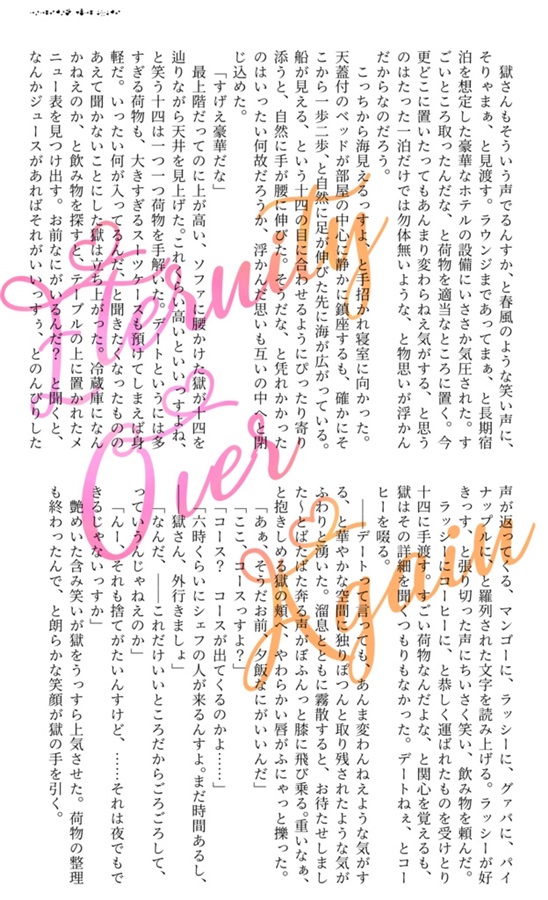 獄さんもそういう声でるんすか、と春風のような笑い声に、
そりゃまぁ、と見渡す。ラウンジまであってまぁ、と長期宿
泊を想定した豪華なホテルの設備にいささか気圧された。す
ごいところ取ったんだな、と荷物を適当なところに置く。今
更どこに置いたってもあんまり変わらねえ気がする、と思う
のはたった一泊だけでは勿体無いような、と物思いが浮かん
だからなのだろう。
こっちから海見えるっすよ、と手招かれ寝室に向かった。
天蓋付のベッドが部屋の中心に静かに鎮座するも、確かにそ
こから一歩二歩、と自然に足が伸びた先に海が広がっている。
船が見える、という十四の目に合わせるようにぴったり寄り
添うと、自然に手が腰に伸びた。そうだな、と凭れかかった
のはいったい何故だろうか、浮かんだ思いも互いの中へと閉
じ込めた。
「すげえ豪華だな」
最上階だってのに上が高い、ソファに腰かけた獄が十四を
辿りながら天井を見上げた。これくらい高いといいっすよね、
と笑う十四は一つ一つ荷物を手解いた。デートというには多
すぎる荷物も、大きすぎるスーツケースも預けてしまえば身
軽だ。いったい何が入ってるんだ、と聞きたくなったものの
あえて聞かないことにした獄は立ち上がった。冷蔵庫になん
かねえのか、と飲み物を探すと、テーブルの上に置かれたメ
ニュー表を見つけ出す。お前なにがいるんだ？　と聞くと、
なんかジュースがあればそれがいいっすぅ、とのんびりした
声が返ってくる、マンゴーに、ラッシーに、グァバに、パイ
ナップルに、と羅列された文字を読み上げる。ラッシーが好
きっす、と張り切った声にちいさく笑い、飲み物を頼んだ。
ラッシーにコーヒーに、と恭しく運ばれたものを受けとり
十四に手渡す。すごい荷物なんだよな、と関心を覚えるも、
獄はその詳細を聞くつもりもなかった。デートねぇ、とコー
ヒーを啜る。
――デートって言っても、あんま変わんねえような気がす
る、と華やかな空間に独りぽつんと取り残されたような気が
ふわっと湧いた。溜息とともに霧散すると、お待たせしまし
た～とぱたぱた奔る声がぼふんっと膝に飛び乗る。重いなぁ、
と抱きしめる獄の頬へ、やわらかい唇がふにゃっと擽った。
「あぁ、そうだお前、夕飯なにがいいんだ」
「ここ、コースっすよ？」
「コース？　コースが出てくるのかよ……」
「六時くらいにシェフの人が来るんすよ。まだ時間あるし、
――獄さん、外行きましょ」
「なんだ、――これだけいいところだからごろごろして、
っていうんじゃねえのか」
「んー、それも捨てがたいんすけど、……それは夜でもで
きるじゃないっすか」
艶めいた含み笑いが獄をうっすら上気させた。荷物の整理
も終わったんで、と朗らかな笑顔が獄の手を引く。
Eternity
Over
Again